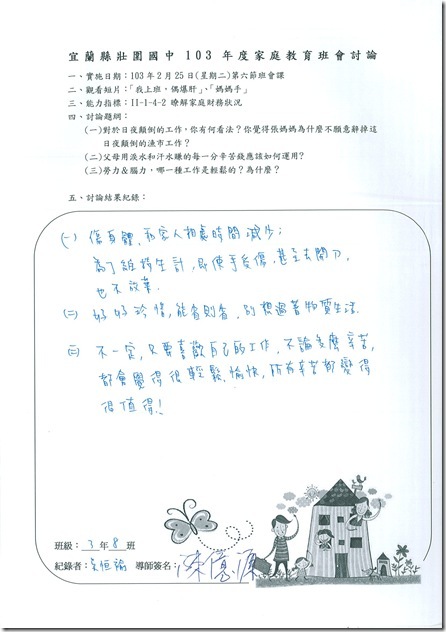 宜蘭縣壯圍國中 103 年度家庭教育班會討論
一、實施日期：103 年 2 月 25 日(星期二)第六節班會課
二、觀看短片：「我上班，偶爆肝」、「媽媽手」
三、能力指標：II-1-4-2 瞭解家庭財務狀況
四、討論題綱：
(一)對於日夜顛倒的工作，你有何看法？你覺得張媽媽為什麼不願意辭掉這
日夜顛倒的漁市工作？
(二)父母用淚水和汗水賺的每一分辛苦錢應該如何運用？
(三)勞力＆腦力，哪一種工作是輕鬆的？為什麼？
五、討論結果紀錄：
(一) 傷身體，和家人相處時間減少；
為了維持生計，即使手受傷，甚至去開刀，
也不放棄．
(二) 好好珍惜，能省則省，別想過著物質生活．
(三) 不一定，只要喜歡自己的工作，不論多麼辛苦，
都會覺得很輕鬆、愉快，所有辛苦都變得
很值得！
班級：3 年 8 班
紀錄者： 導師簽名：